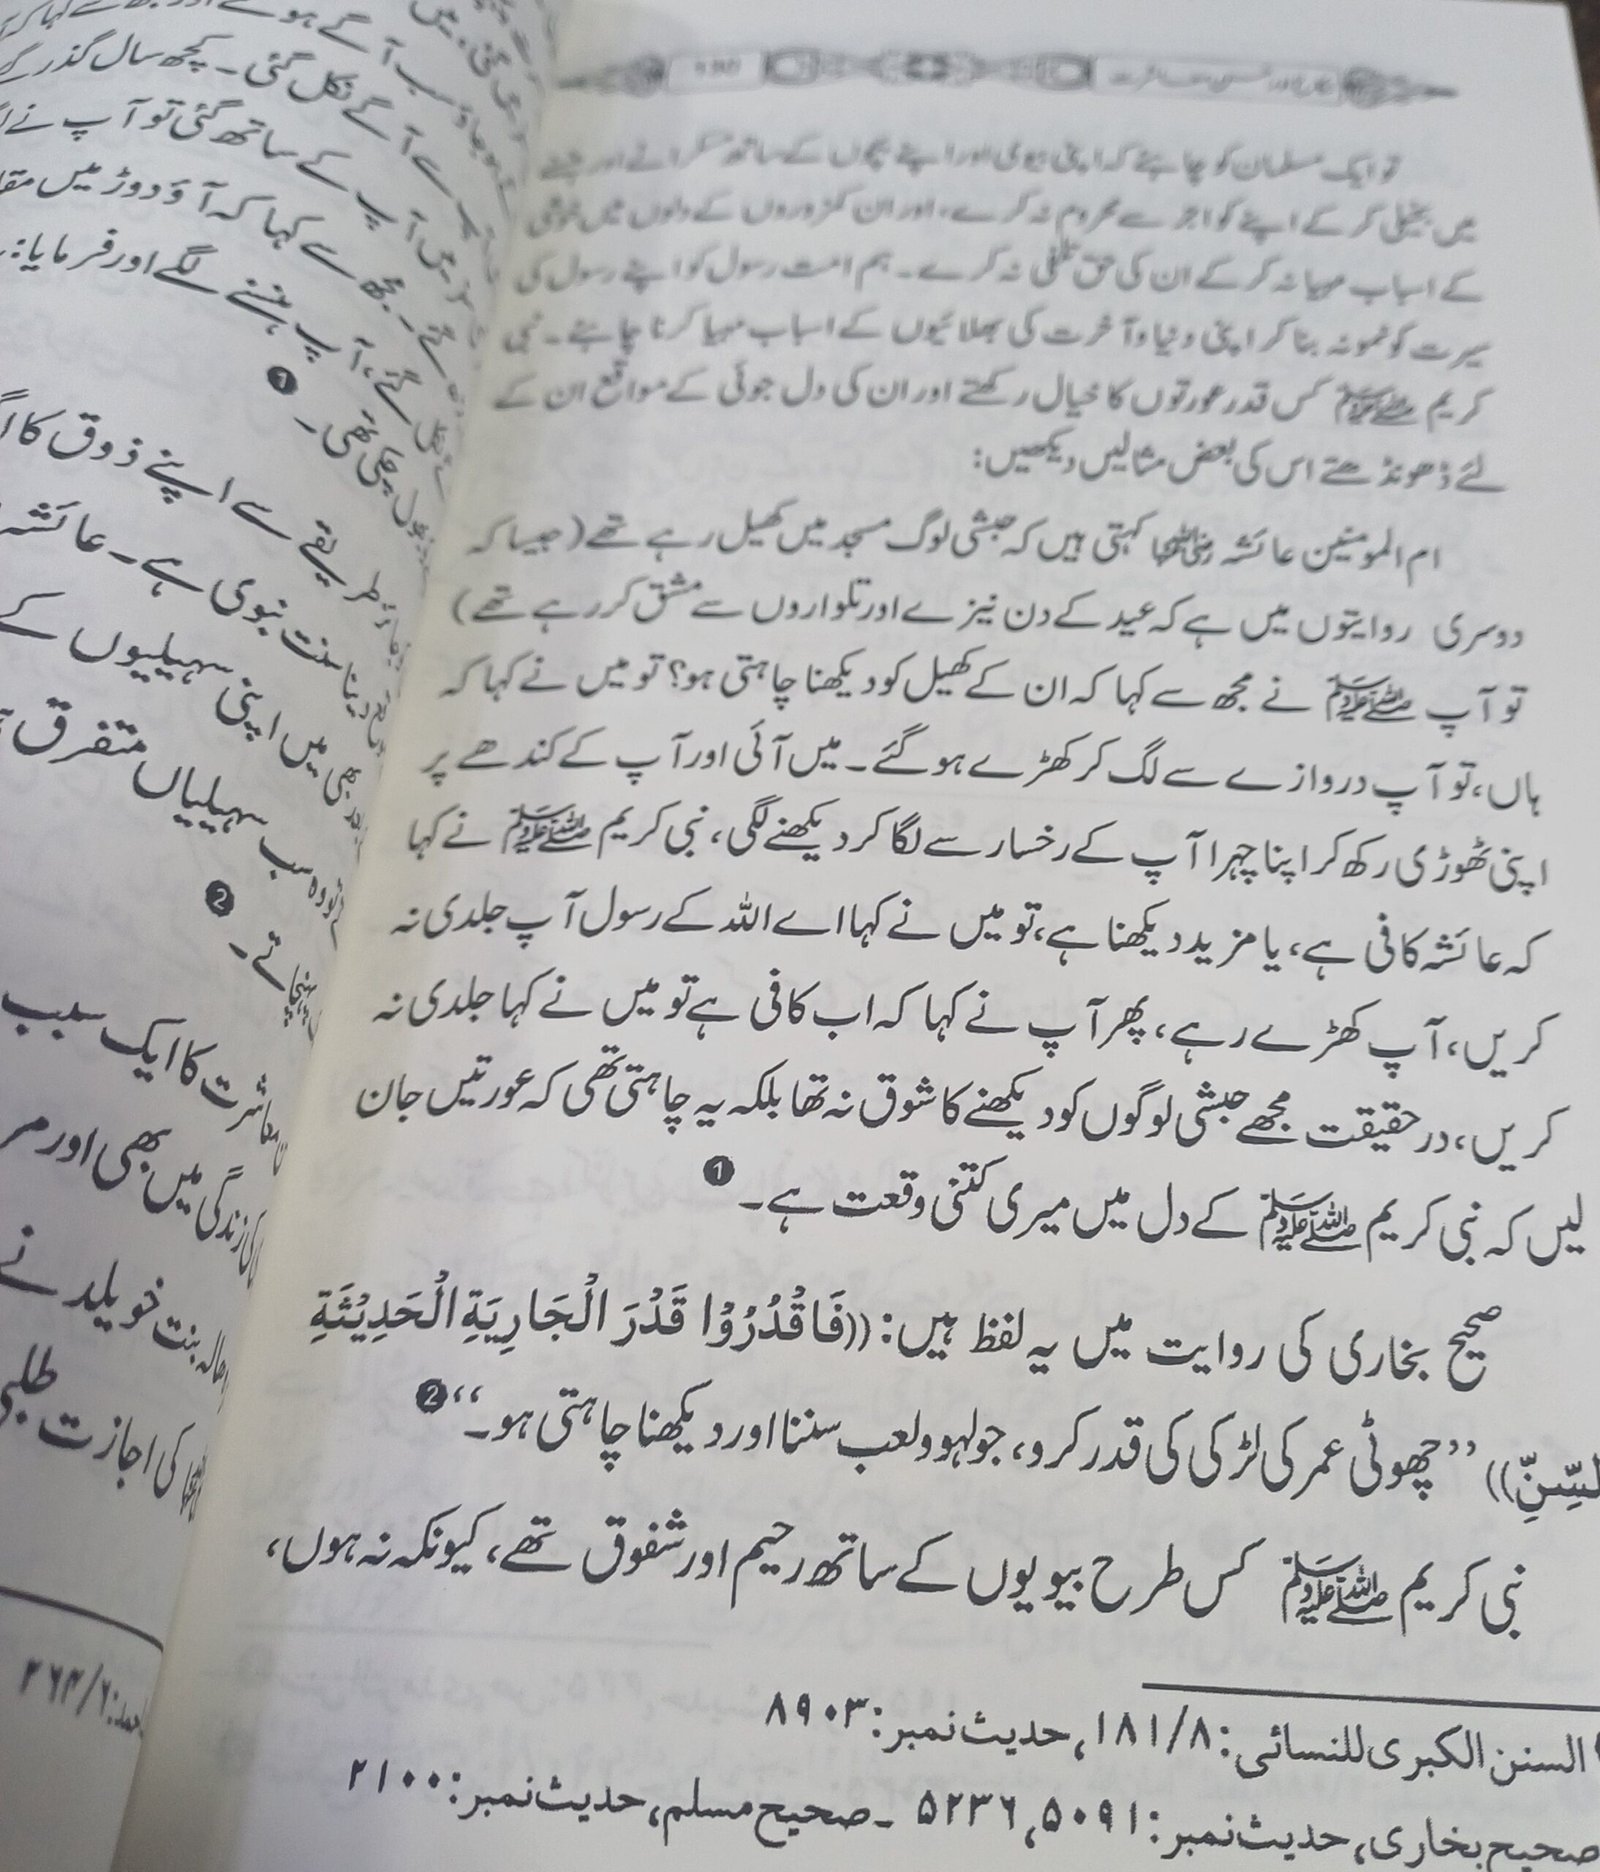 تو ایک مسلمان کو چاہئے کہ اپنی بیوی اور اپنے بچوں کے ساتھ مسکرانے اور ہنسنے
میں بخیلی کر کے اپنے کو اجر سے محروم نہ کرے، اور ان کمزوروں کے دلوں میں خوشی
کے اسباب مہیا نہ کر کے ان کی حق تلفی نہ کرے۔ ہم امت رسول کو اپنے رسول کی
سیرت کو نمونہ بنا کر اپنی دنیا و آخرت کی بھلائیوں کے اسباب مہیا کرنا چاہئے۔ نبی
کریم ﷺ کس قدر عورتوں کا خیال رکھتے اور ان کی دل جوئی کے مواقع ان کے
لئے ڈھونڈھتے اس کی بعض مثالیں دیکھیں:
ام المومنین عائشہ رضی اللہ عنہا کہتی ہیں کہ حبشی لوگ مسجد میں کھیل رہے تھے (جیسا کہ
دوسری روایتوں میں ہے کہ عید کے دن نیزے اور تلواروں سے مشق کر رہے تھے)
تو آپ ﷺ نے مجھ سے کہا کہ ان کے کھیل کو دیکھنا چاہتی ہو؟ تو میں نے کہا کہ
ہاں، تو آپ دروازے سے لگ کر کھڑے ہو گئے۔ میں آئی اور آپ کے کندھے پر
اپنی ٹھوڑی رکھ کر اپنا چہرا آپ کے رخسار سے لگا کر دیکھنے لگی، نبی کریم ﷺ نے کہا
کہ عائشہ کافی ہے، یا مزید دیکھنا ہے، تو میں نے کہا اے اللہ کے رسول آپ جلدی نہ
کریں، آپ کھڑے رہے، پھر آپ نے کہا کہ اب کافی ہے تو میں نے کہا جلدی نہ
کریں، در حقیقت مجھے حبشی لوگوں کو دیکھنے کا شوق نہ تھا بلکہ یہ چاہتی تھی کہ عورتیں جان
لیں کہ نبی کریم ﷺ کے دل میں میری کتنی وقعت ہے۔ ❶
صحیح بخاری کی روایت میں یہ لفظ ہیں: ((فَاقْدُرُوْا قَدْرَ الْجَارِيَةِ الْحَدِيْثَةِ
السِّنِّ)) ’’چھوٹی عمر کی لڑکی کی قدر کرو، جو لہو ولعب سننا اور دیکھنا چاہتی ہو۔‘‘ ❷
نبی کریم ﷺ کس طرح بیویوں کے ساتھ رحیم اور شفوق تھے، کیونکہ نہ ہوں،
السنن الکبری للنسائی: ۱۸۱/۸، حدیث نمبر: ۸۹۰۳
صحیح بخاری، حدیث نمبر: ۵۰۹۱، ۵۲۳۶ ۔ صحیح مسلم، حدیث نمبر: ۲۱۰۰
آگے نکل گئی۔ کچھ سال گذر گئے
آپ کے ساتھ گئی تو آپ نے
مجھ سے کہا کہ آؤ دوڑ میں
آپ ہنسنے لگے اور فرمایا:
چکی تھی۔ ❶
طریقے سے اپنے ذوق کا
سنت نبوی ہے۔ عائشہ
میں اپنی سہیلیوں کے
سب سہیلیاں متفرق
❷
معاشرت کا ایک سبب
زندگی میں بھی اور
بنت خویلد نے
کی اجازت طلبی
۲۶۴/۶